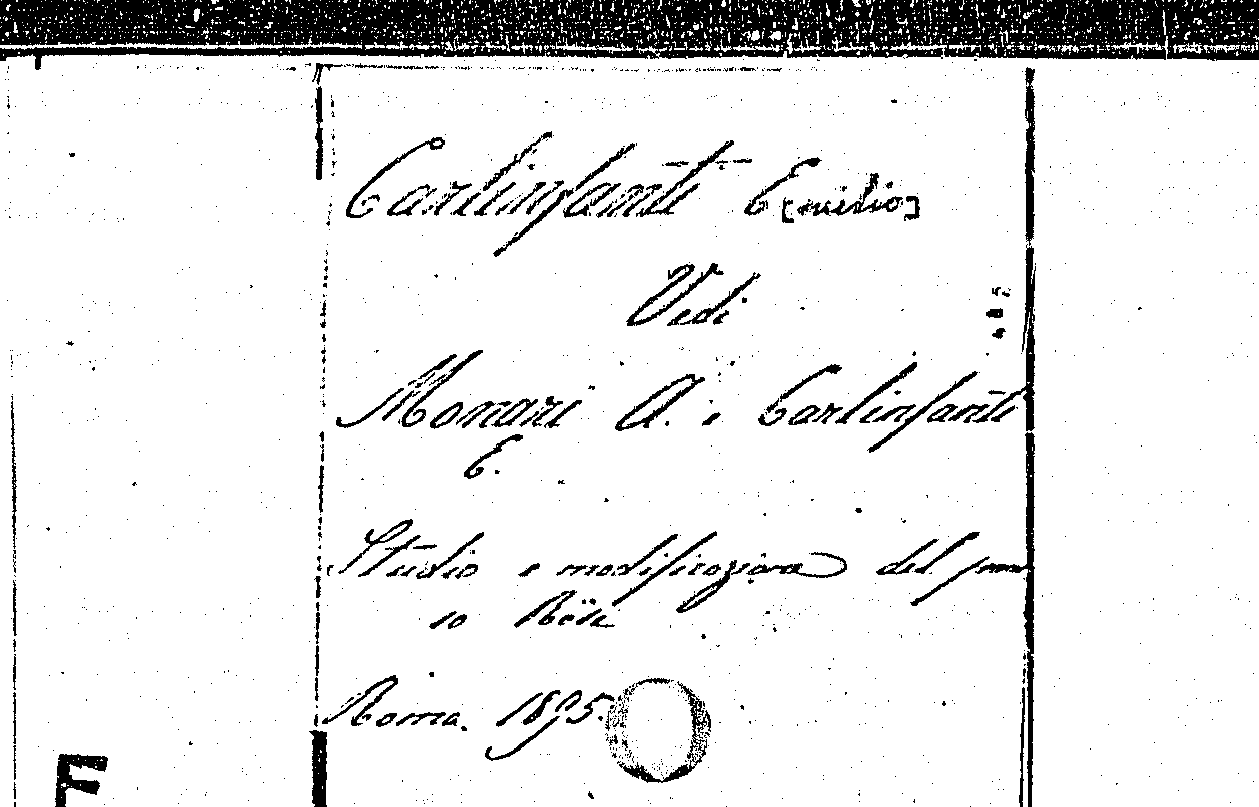 Carlinfanti E[milio]
Vedi
Monari A. e Carlinfanti
E.
Studio e modificazione del
so Röse
Roma. 1895.
F